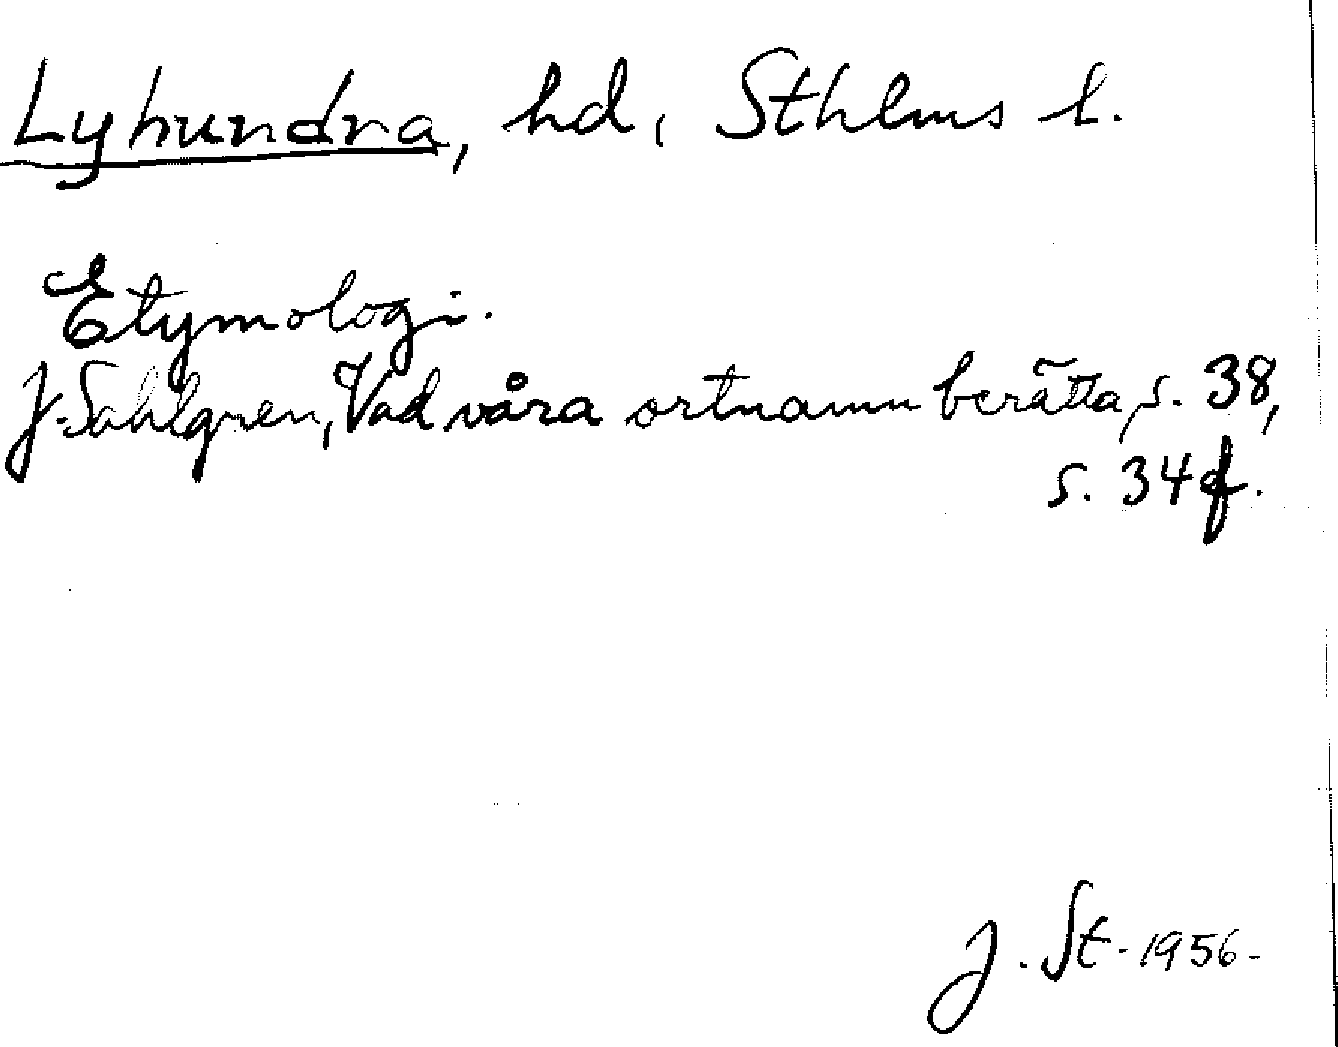 Lyhundra, hd, Sthlms l.
Etymologi.
J. Sahlgren, Vad våra ortnamn berätta, s. 38,
s. 34 f.
J. St. 1956.